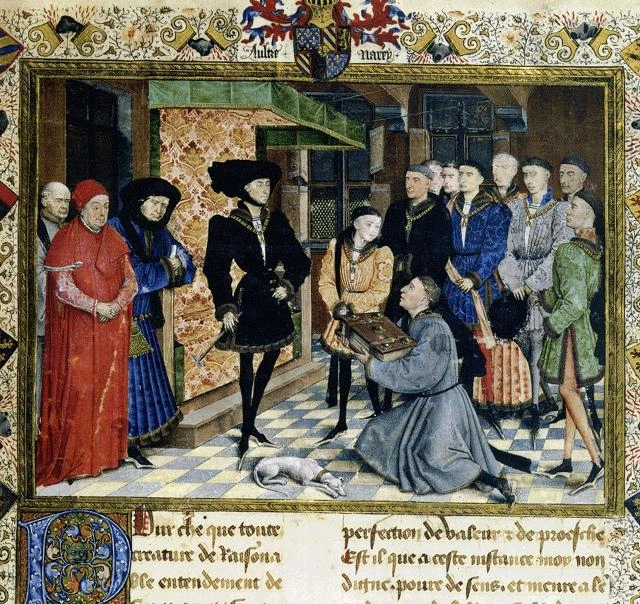 Aultre narey
Pour che que toute
creature de Raisona
ble entendement de
perfection de valeur & de proesche
Est il que a ceste instance moy non
digne, poure de sens, et meure a le